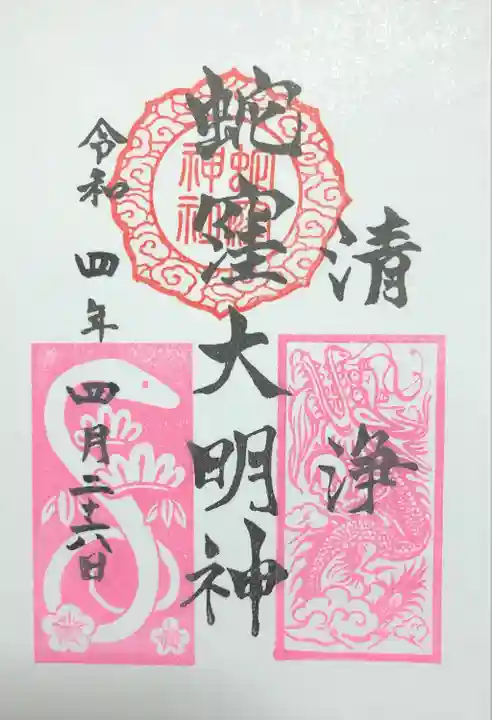 清浄
蛇窪大明神
蛇窪神社
令和四年四月二十六日